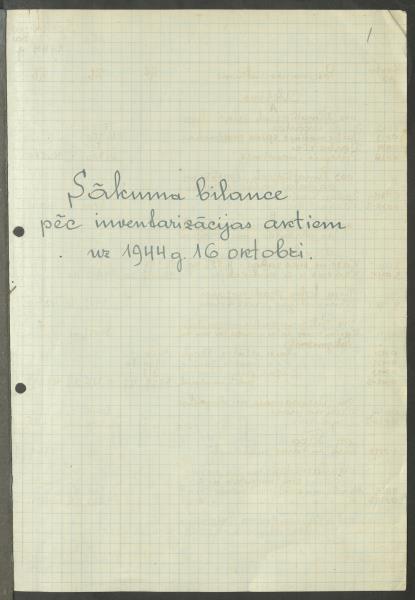 1
Sākuma bilance
pēc inventarizācijas aktiem
uz 1944 g. 16 oktobri.